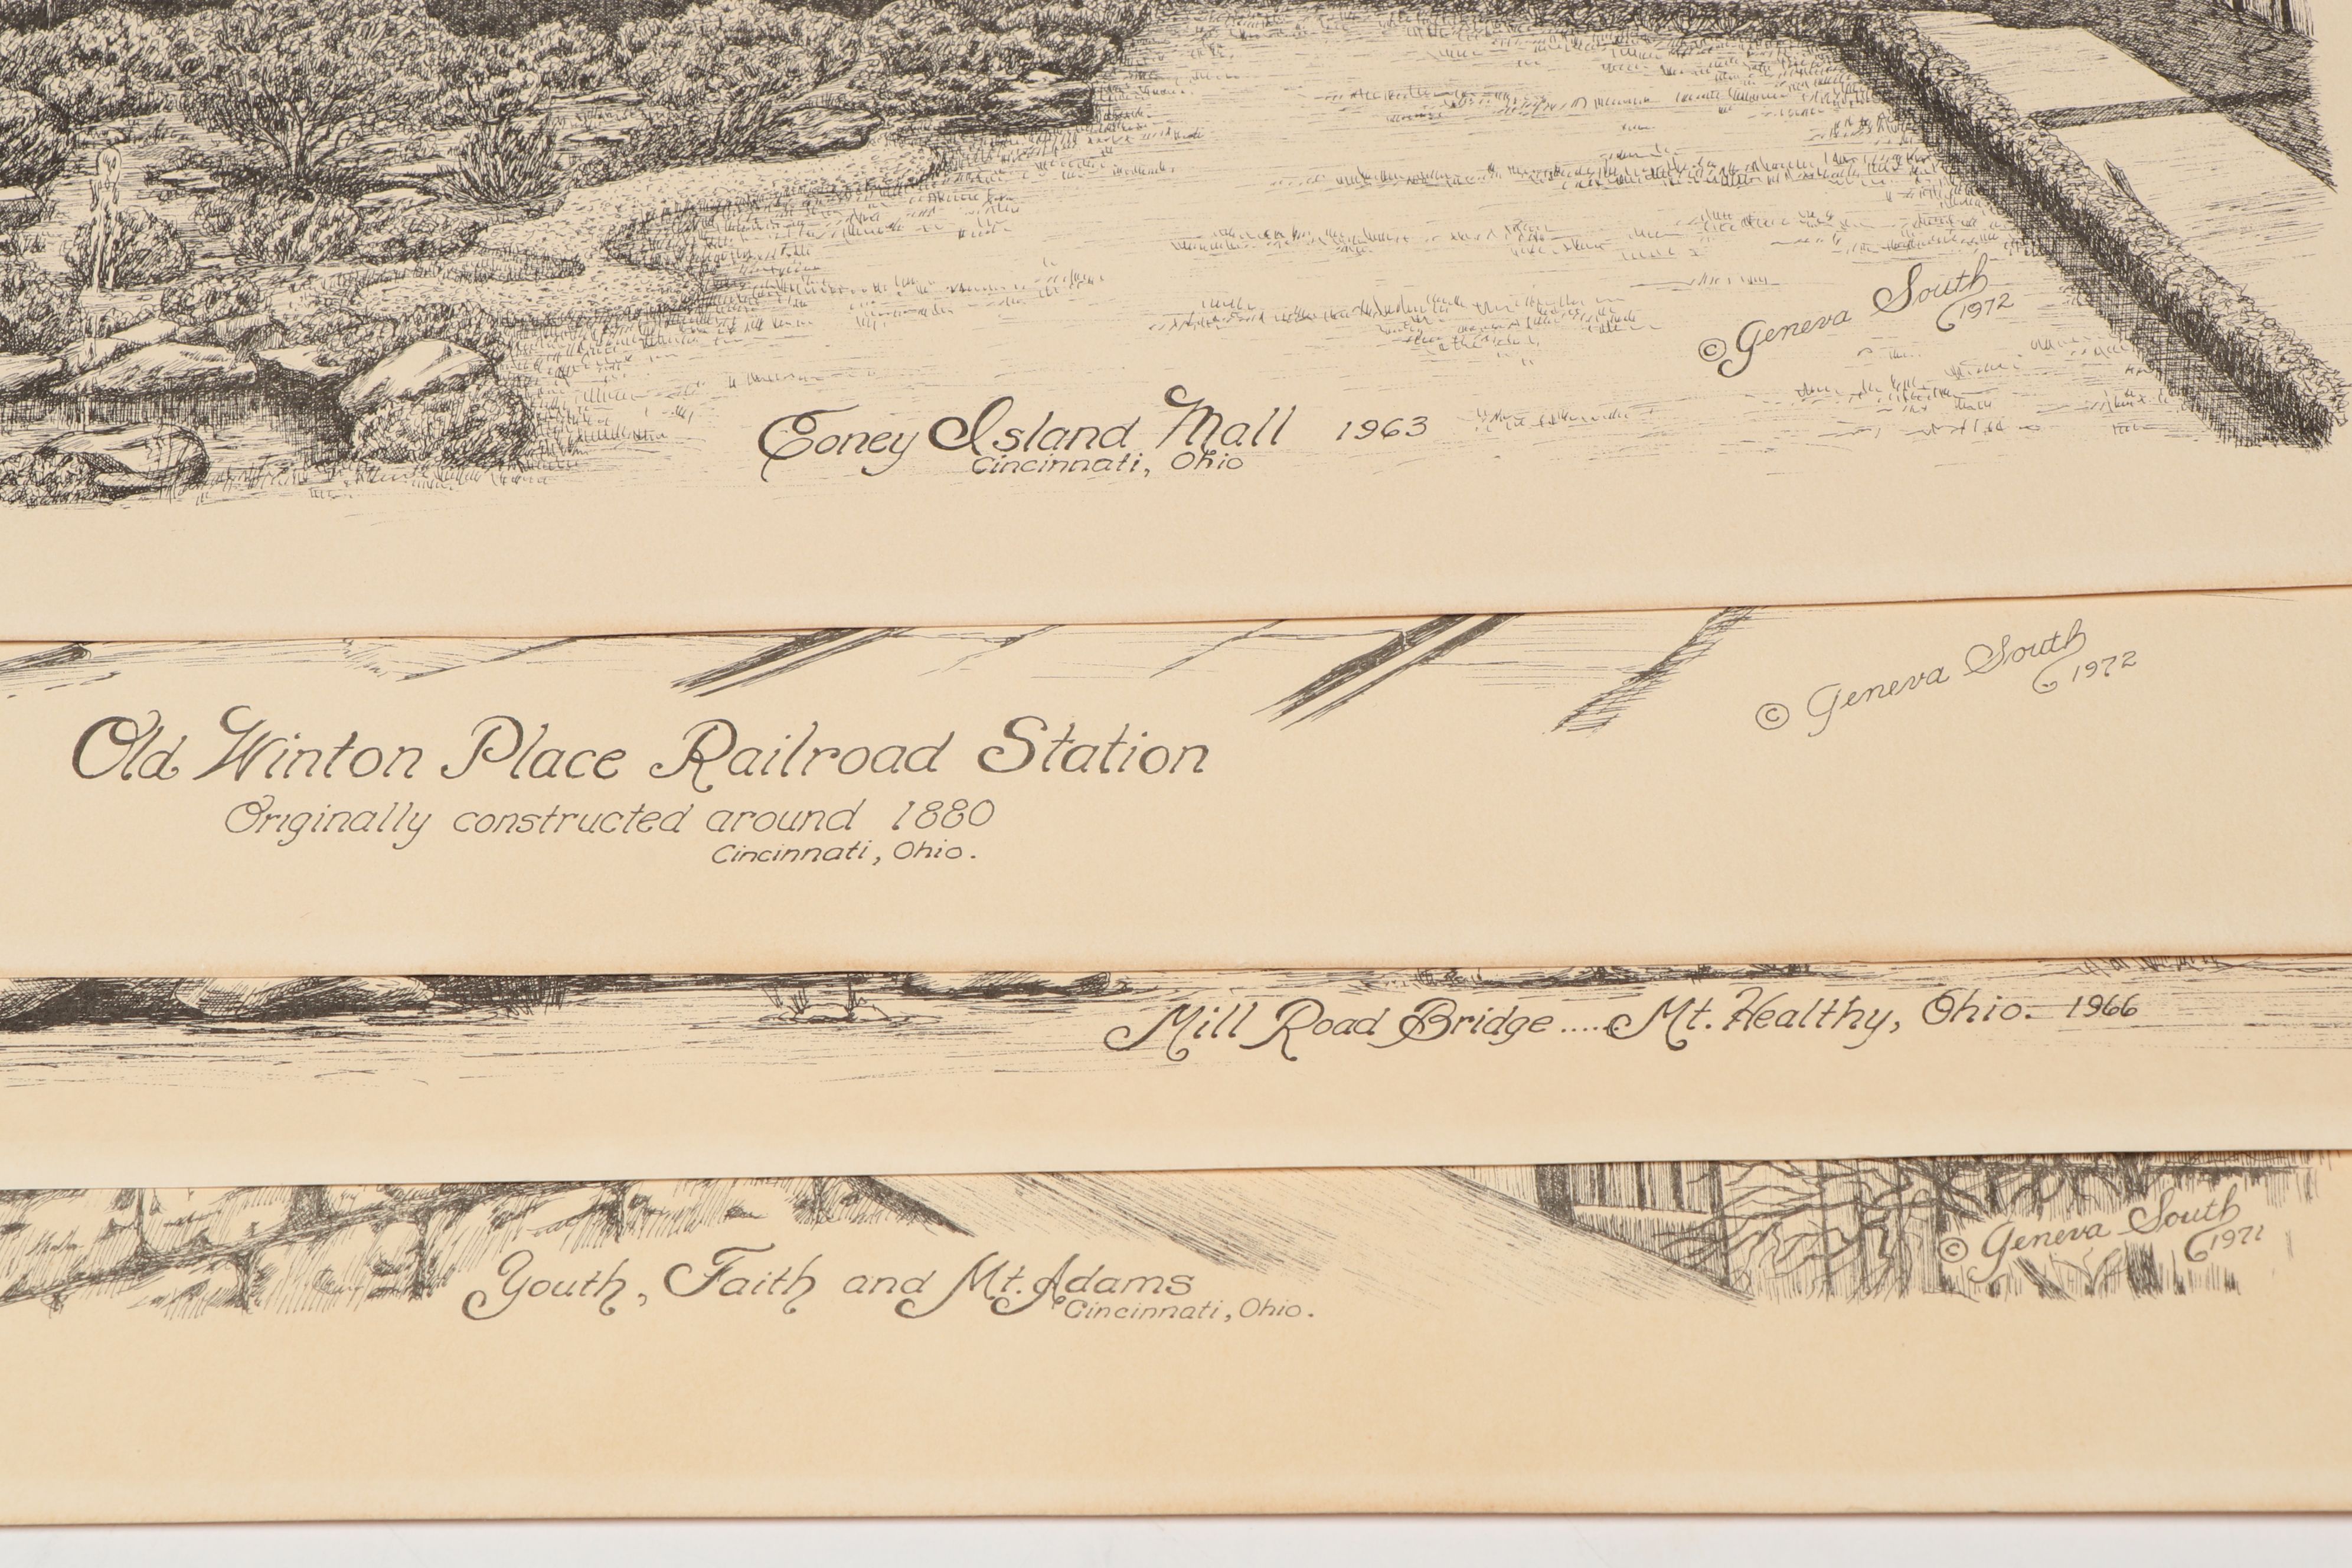 © Geneva South
1972
Coney Island Mall 1963
Cincinnati, Ohio
© Geneva South
1972
Old Winton Place Railroad Station
Originally constructed around 1880
Cincinnati, Ohio.
Mill Road Bridge.....Mt. Healthy, Ohio. 1966
© Geneva South
1971
Youth, Faith and Mt. Adams
Cincinnati, Ohio.